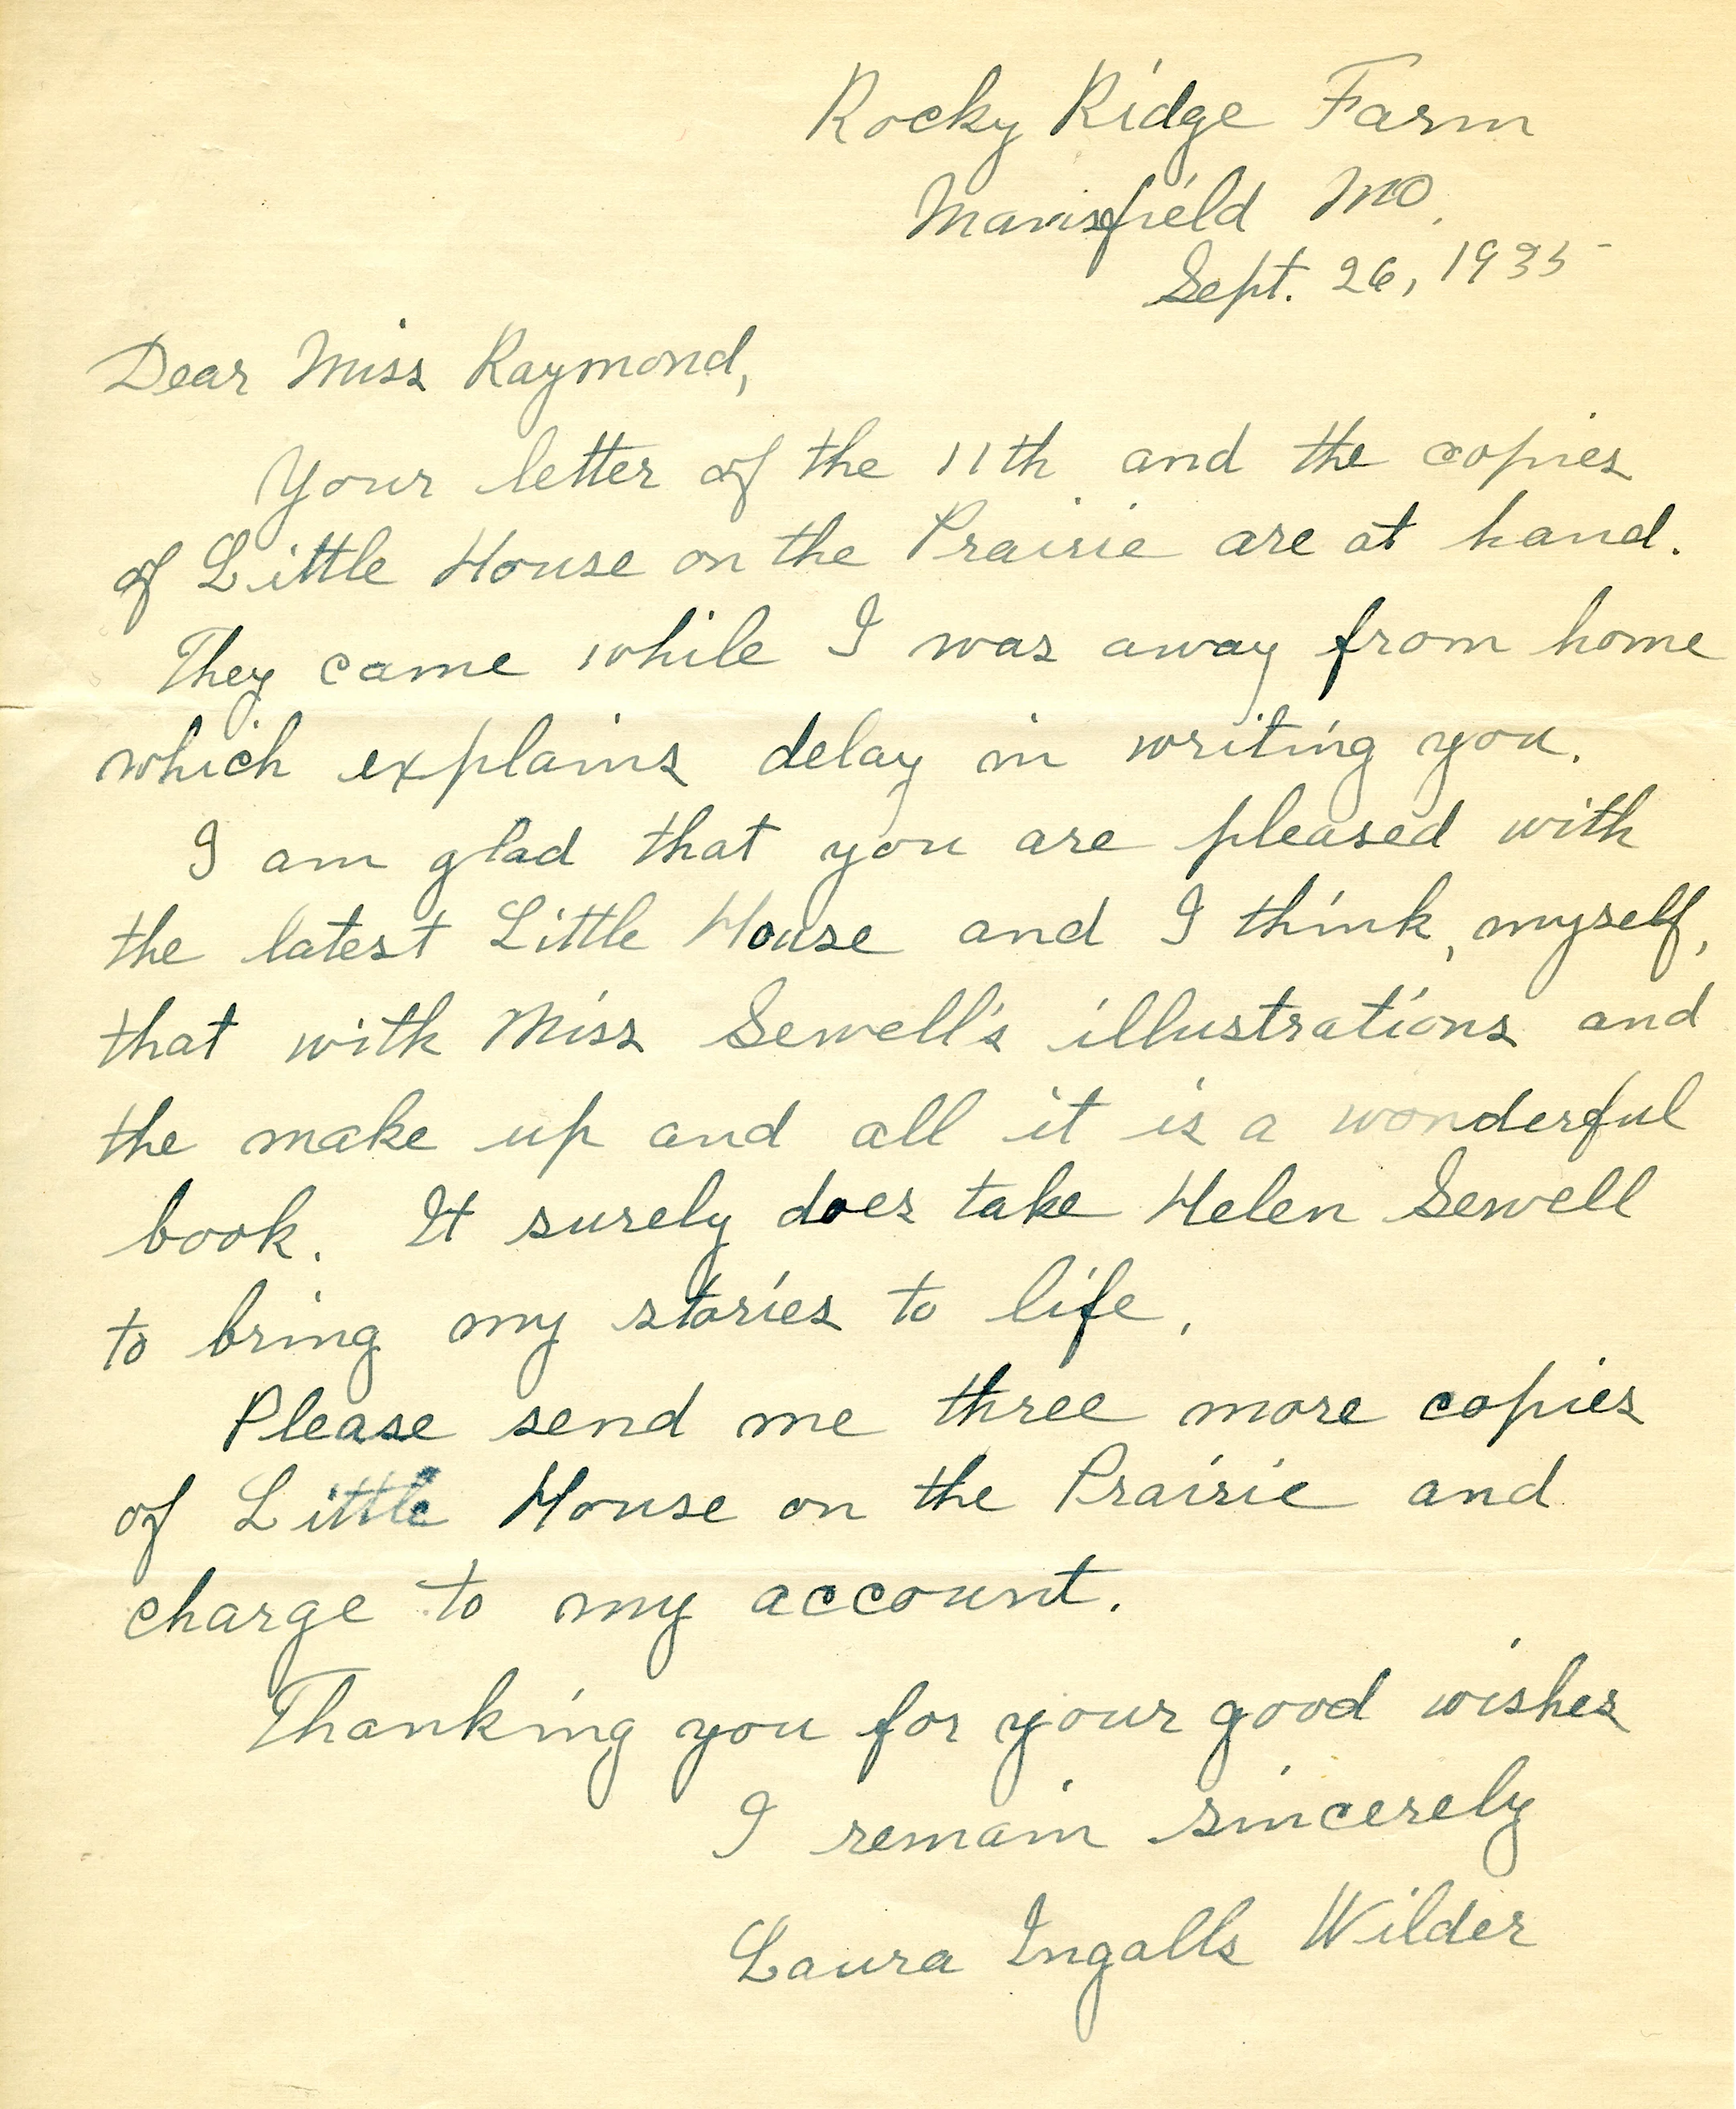 Rocky Ridge Farm
Mansfield Mo.
Sept. 26, 1935
Dear Miss Raymond,
Your letter of the 11th and the copies
of Little House on the Prairie are at hand.
They came while I was away from home
which explains delay in writing you.
I am glad that you are pleased with
the latest Little House and I think, myself,
that with Miss Sewell's illustrations and
the make up and all it is a wonderful
book. It surely does take Helen Sewell
to bring my stories to life.
Please send me three more copies
of Little House on the Prairie and
charge to my account.
Thanking you for your good wishes
I remain sincerely
Laura Ingalls Wilder